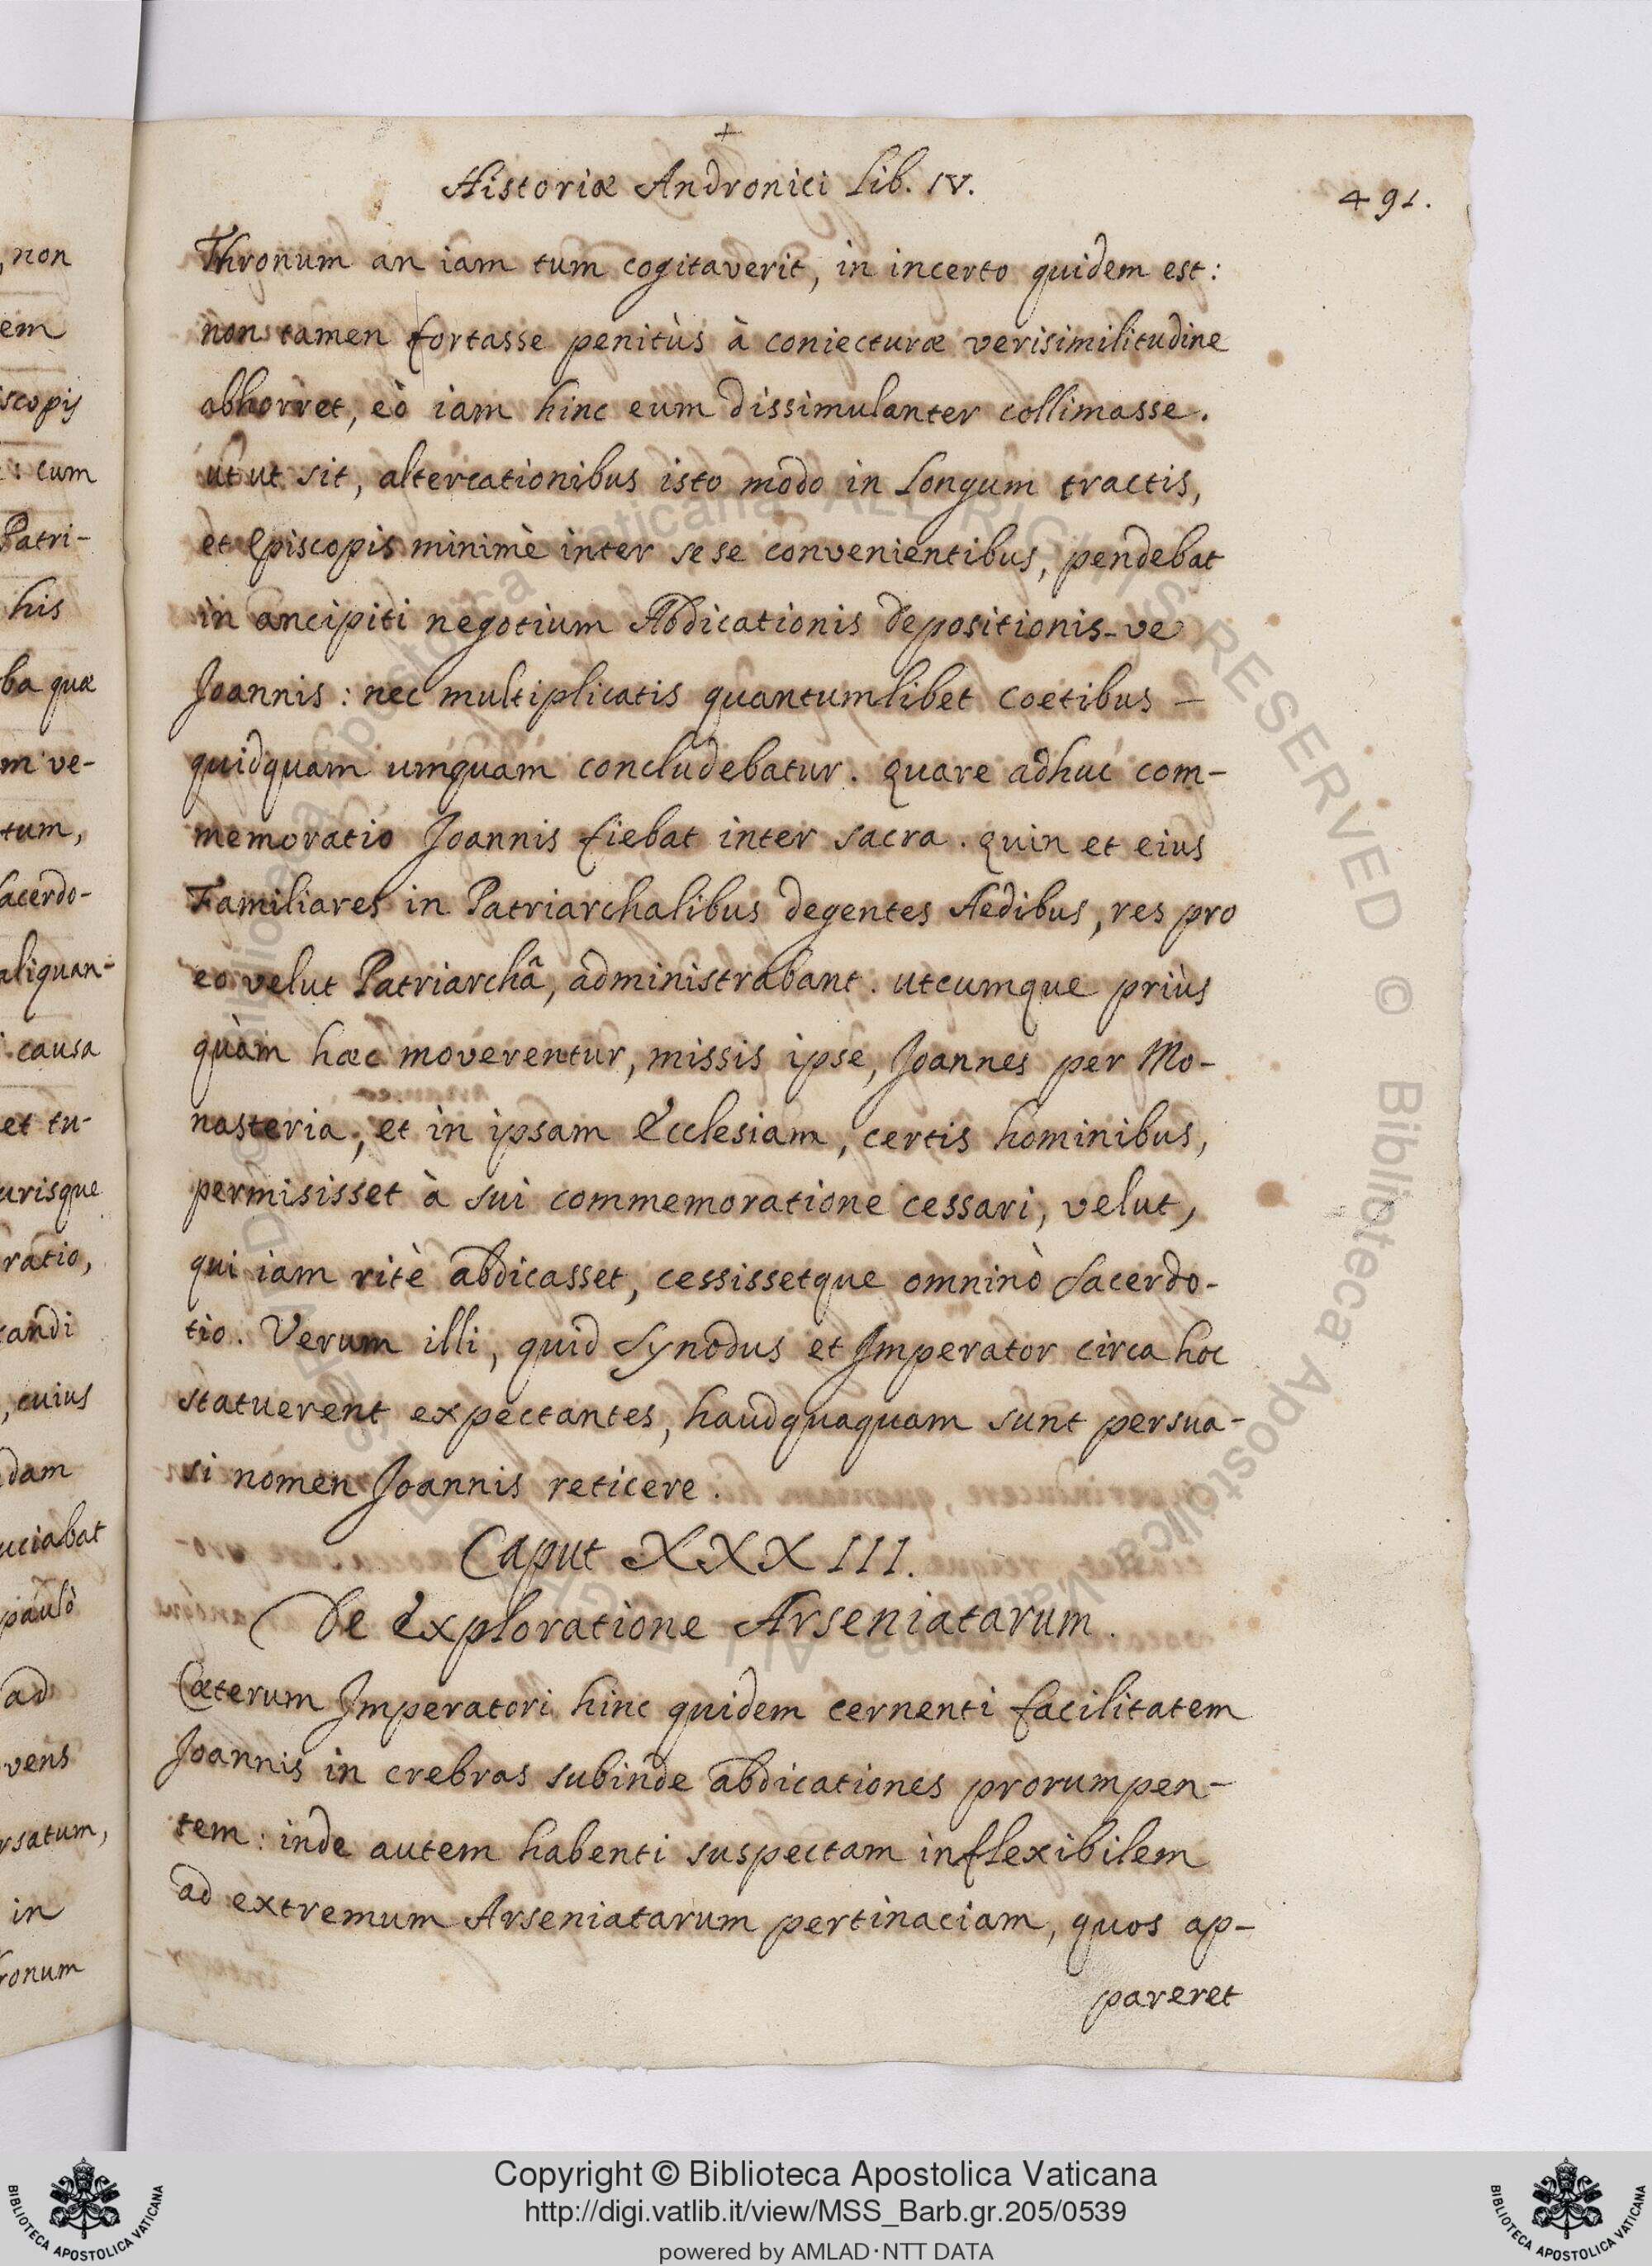 +
Historiæ Andronici Lib. IV.
491.
Thronum an iam tum cogitaverit, in incerto quidem est:
non tamen fortasse penitùs à coniecturæ verisimilitudine
abhorret, eò iam hinc eum dissimulanter collimasse.
ut ut sit, altercationibus isto modo in longum tractis,
et Episcopis minimè inter sese convenientibus, pendebat
in ancipiti negotium Abdicationis depositionis-ve
Joannis: nec multiplicatis quantumlibet coetibus –
quidquam umquam concludebatur. Quare adhuc com-
memoratio Joannis fiebat inter sacra. Quin et eius
Familiares in Patriarchalibus degentes Aedibus, res pro
eo velut Patriarchâ, administrabant. utcumque priùs
quàm hæc moverentur, missis ipse, Joannes per Mo-
nasteria, et in ipsam Ecclesiam, certis hominibus,
permisisset à sui commemoratione cessari, velut,
qui iam ritè abdicasset, cessissetque omninò Sacerdo-
tio. Verum illi, quid Synodus et Imperator circa hoc
statuerent expectantes, haudquaquam sunt persua-
si nomen Joannis reticere.
Caput XXXIII.
De Exploratione Arseniatarum.
Cæterum Imperatori hinc quidem cernenti facilitatem
Joannis in crebras subinde abdicationes prorumpen-
tem: inde autem habenti suspectam inflexibilem
ad extremum Arseniatarum pertinaciam, quos ap-
pareret
, non
em
scopis
: cum
Patri-
his
ba quæ
m ve-
tum,
acerdo-
aliquan-
causa
et tu-
urisque
ratio,
tandi
, cuius
dam
uciabat
paulò
ad
vens
rsatum,
in
ronum
© Biblioteca Apostolica Vaticana ALL RIGHTS RESERVED © Biblioteca Apostolica Vaticana ALL RIGHTS RESERVED
Copyright © Biblioteca Apostolica Vaticana
http://digi.vatlib.it/view/MSS_Barb.gr.205/0539
powered by AMLAD·NTT DATA
BIBLIOTECA APOSTOLICA VATICANA
BIBLIOTECA APOSTOLICA VATICANA